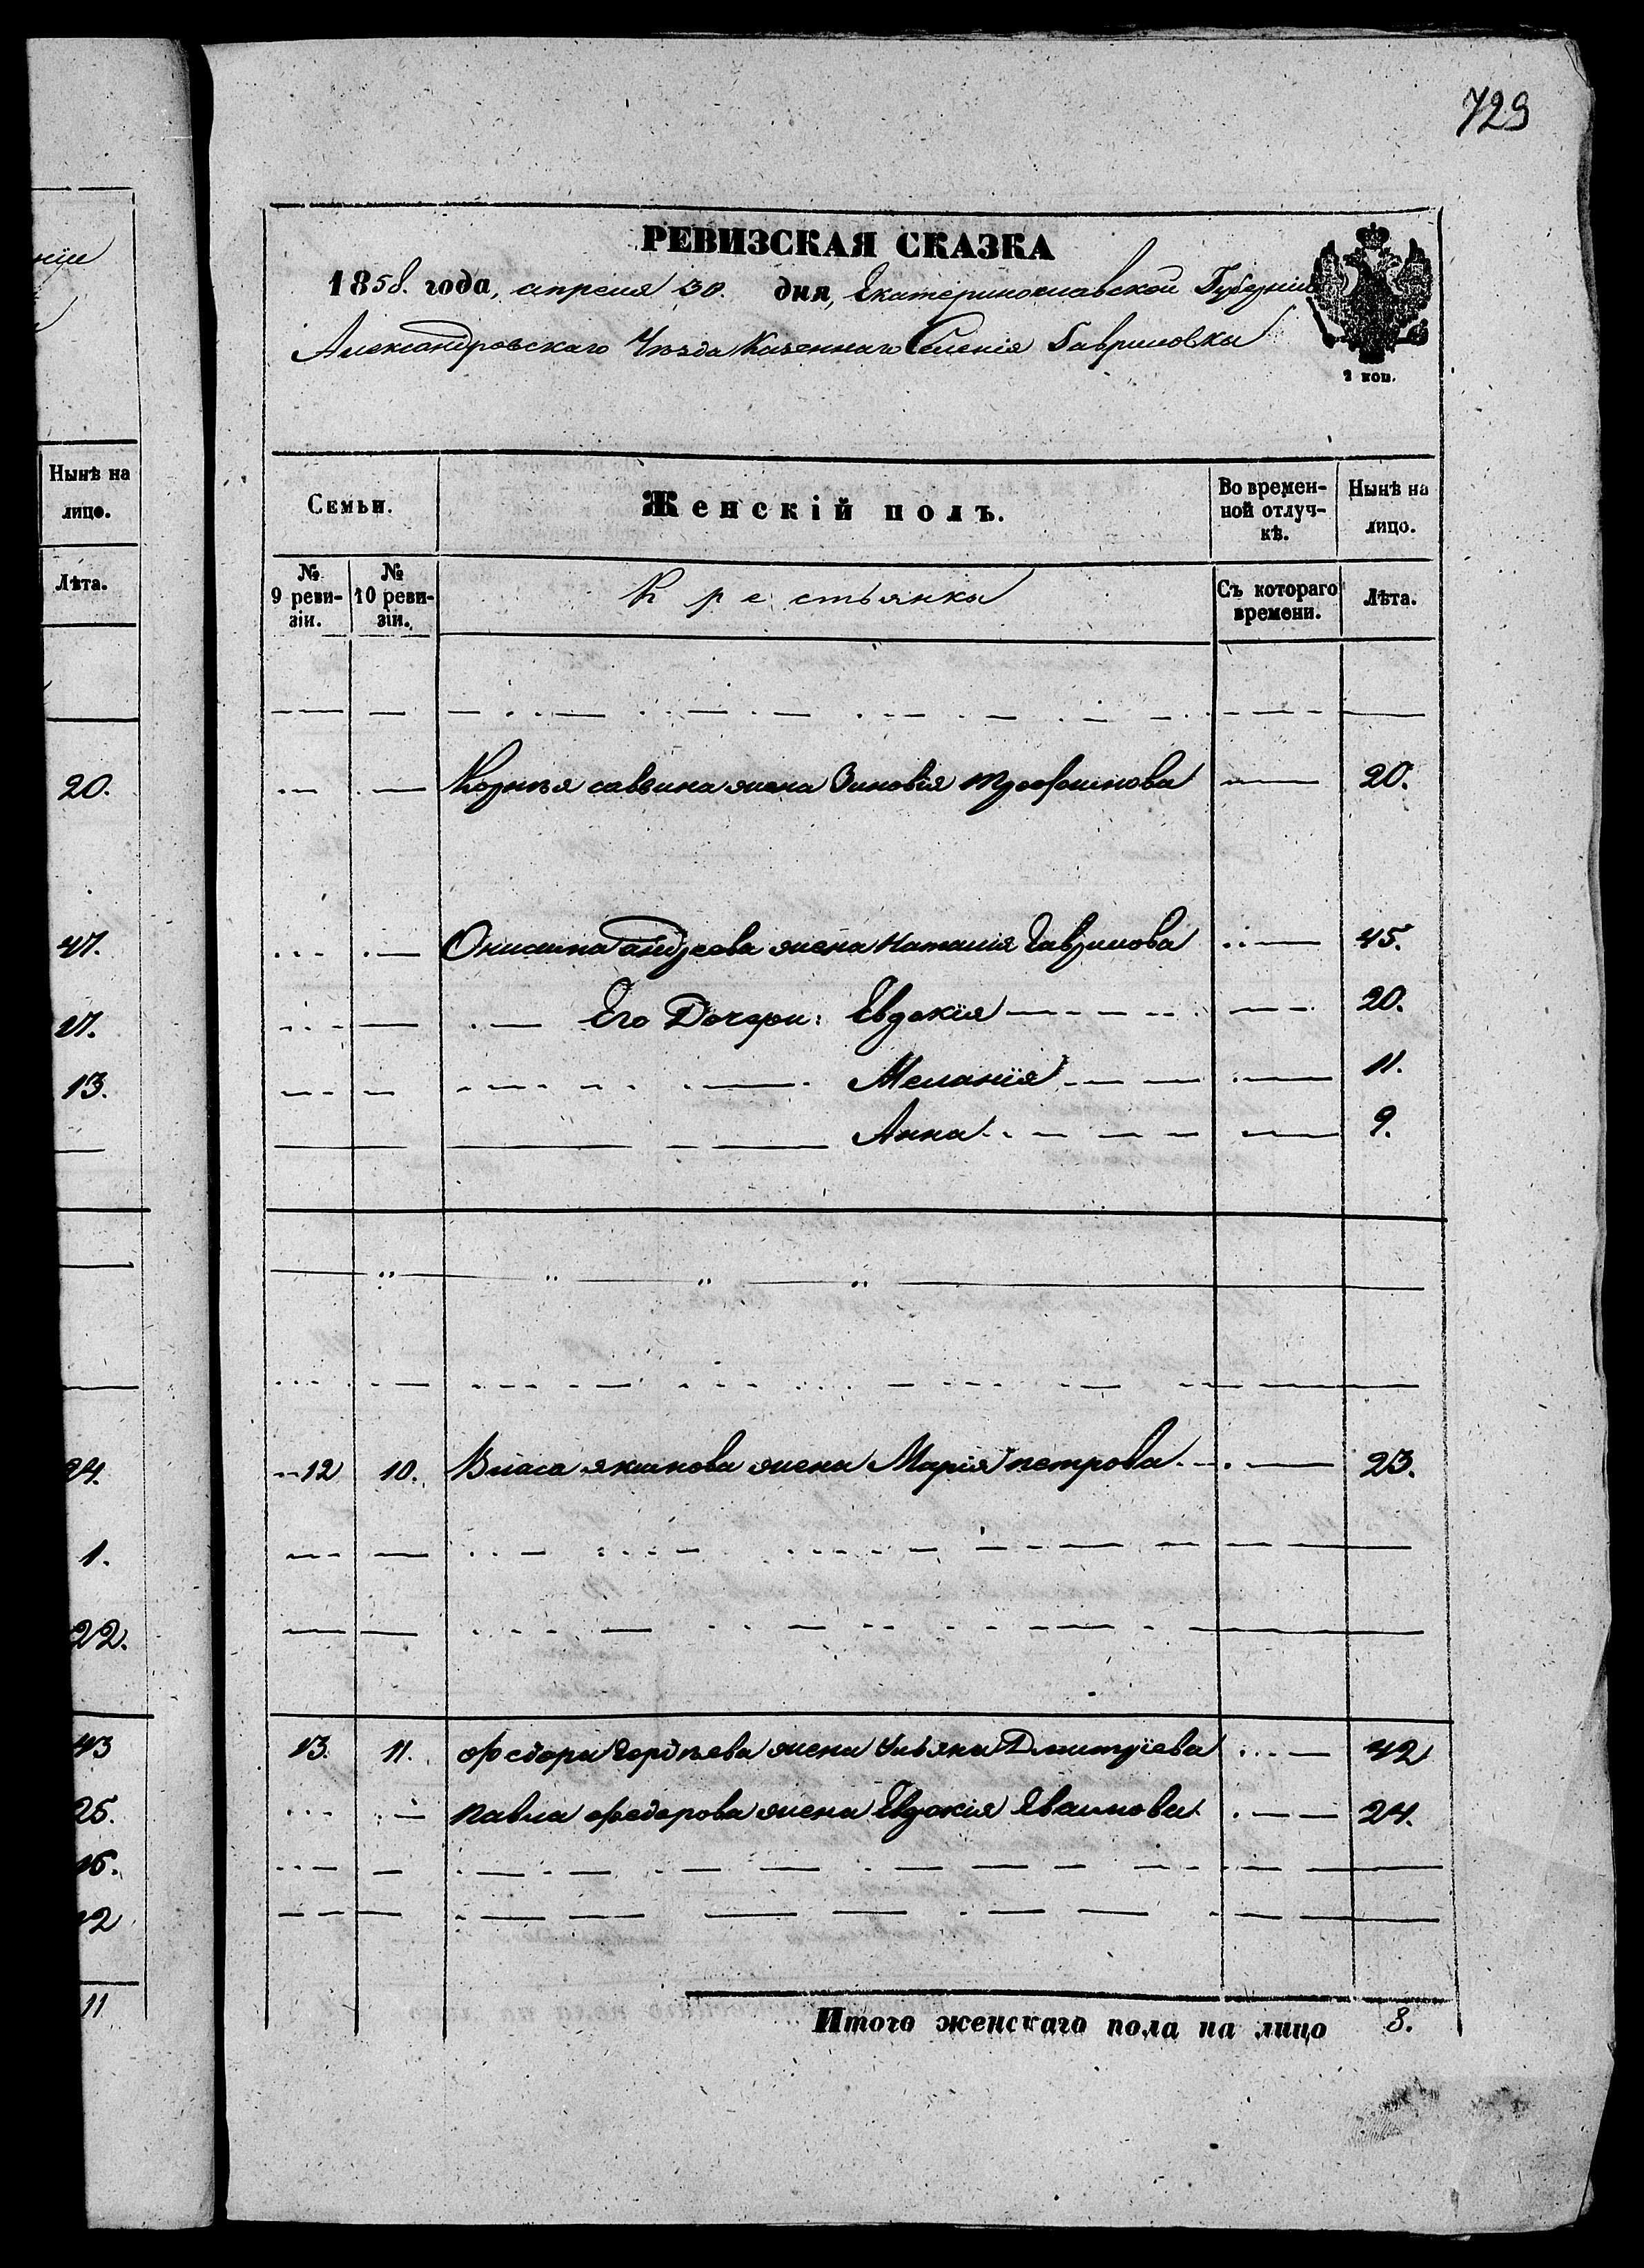 729
РЕВИЗСКАЯ СКАЗКА
1858. года, апреля 30. дня, Екатеринославской Губерніи
Александровскаго Уѣзда Казеннаго Селенія Гавриловки
2 коп.
Нынѣ на лицо.
Лѣта.
20.
47.
27.
13.
24.
1.
22.
43
25.
16.
12
11
Семьи.
Женскій полъ.
Во времен-
ной отлуч-
кѣ.
Нынѣ на
лицо.
№
9 реви-
зіи.
№
10 реви-
зіи.
Крестьянки
Съ котораго
времени.
Лѣта.
Корнѣя саввина жена Зиновія трофимова 20.
Онисима андреева жена Наталія Гаврилова 45.
Его Дочери: Евдокія 20.
Меланія 11.
Анна 9.
12 10. Власа якимова жена Марія петрова 23.
13. 11. федора Гордѣева жена Ульяна Дмитріева 42
павла федорова жена Евдокія Якимова 24.
Итого женскаго пола на лицо 8.